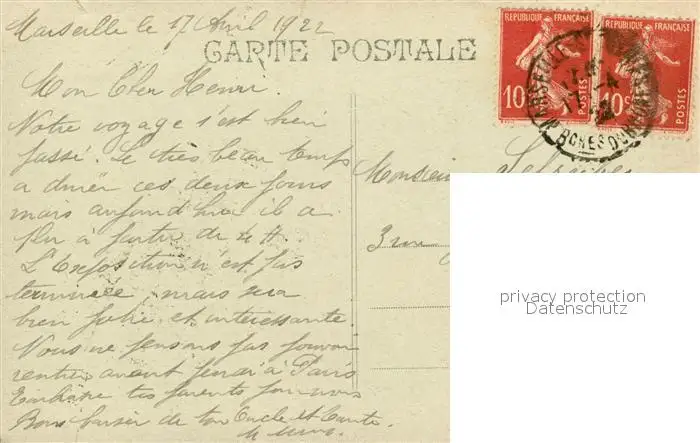 Marseille le 17 Avril 1922
CARTE POSTALE
REPUBLIQUE FRANÇAISE
REPUBLIQUE FRANÇAISE
10c POSTES
10c POSTES
MARSEILLE
BCHES DU RH
Mon Cher Henri.
Notre voyage s'est bien
passé. Le très beau temps
a durér ces deux jours
mais aujourd'hui il a
plu à partir de 4 H.
L'Exposition n'est pas
terminée, mais sera
bien jolie et intéressante.
Nous ne pensons pas pouvoir
rentrer avant jeudi à Paris
Embrasse tes parents pour nous
Bons baiser de ton Oncle et Tante.
Monsieur
3 rue
privacy protection
Datenschutz